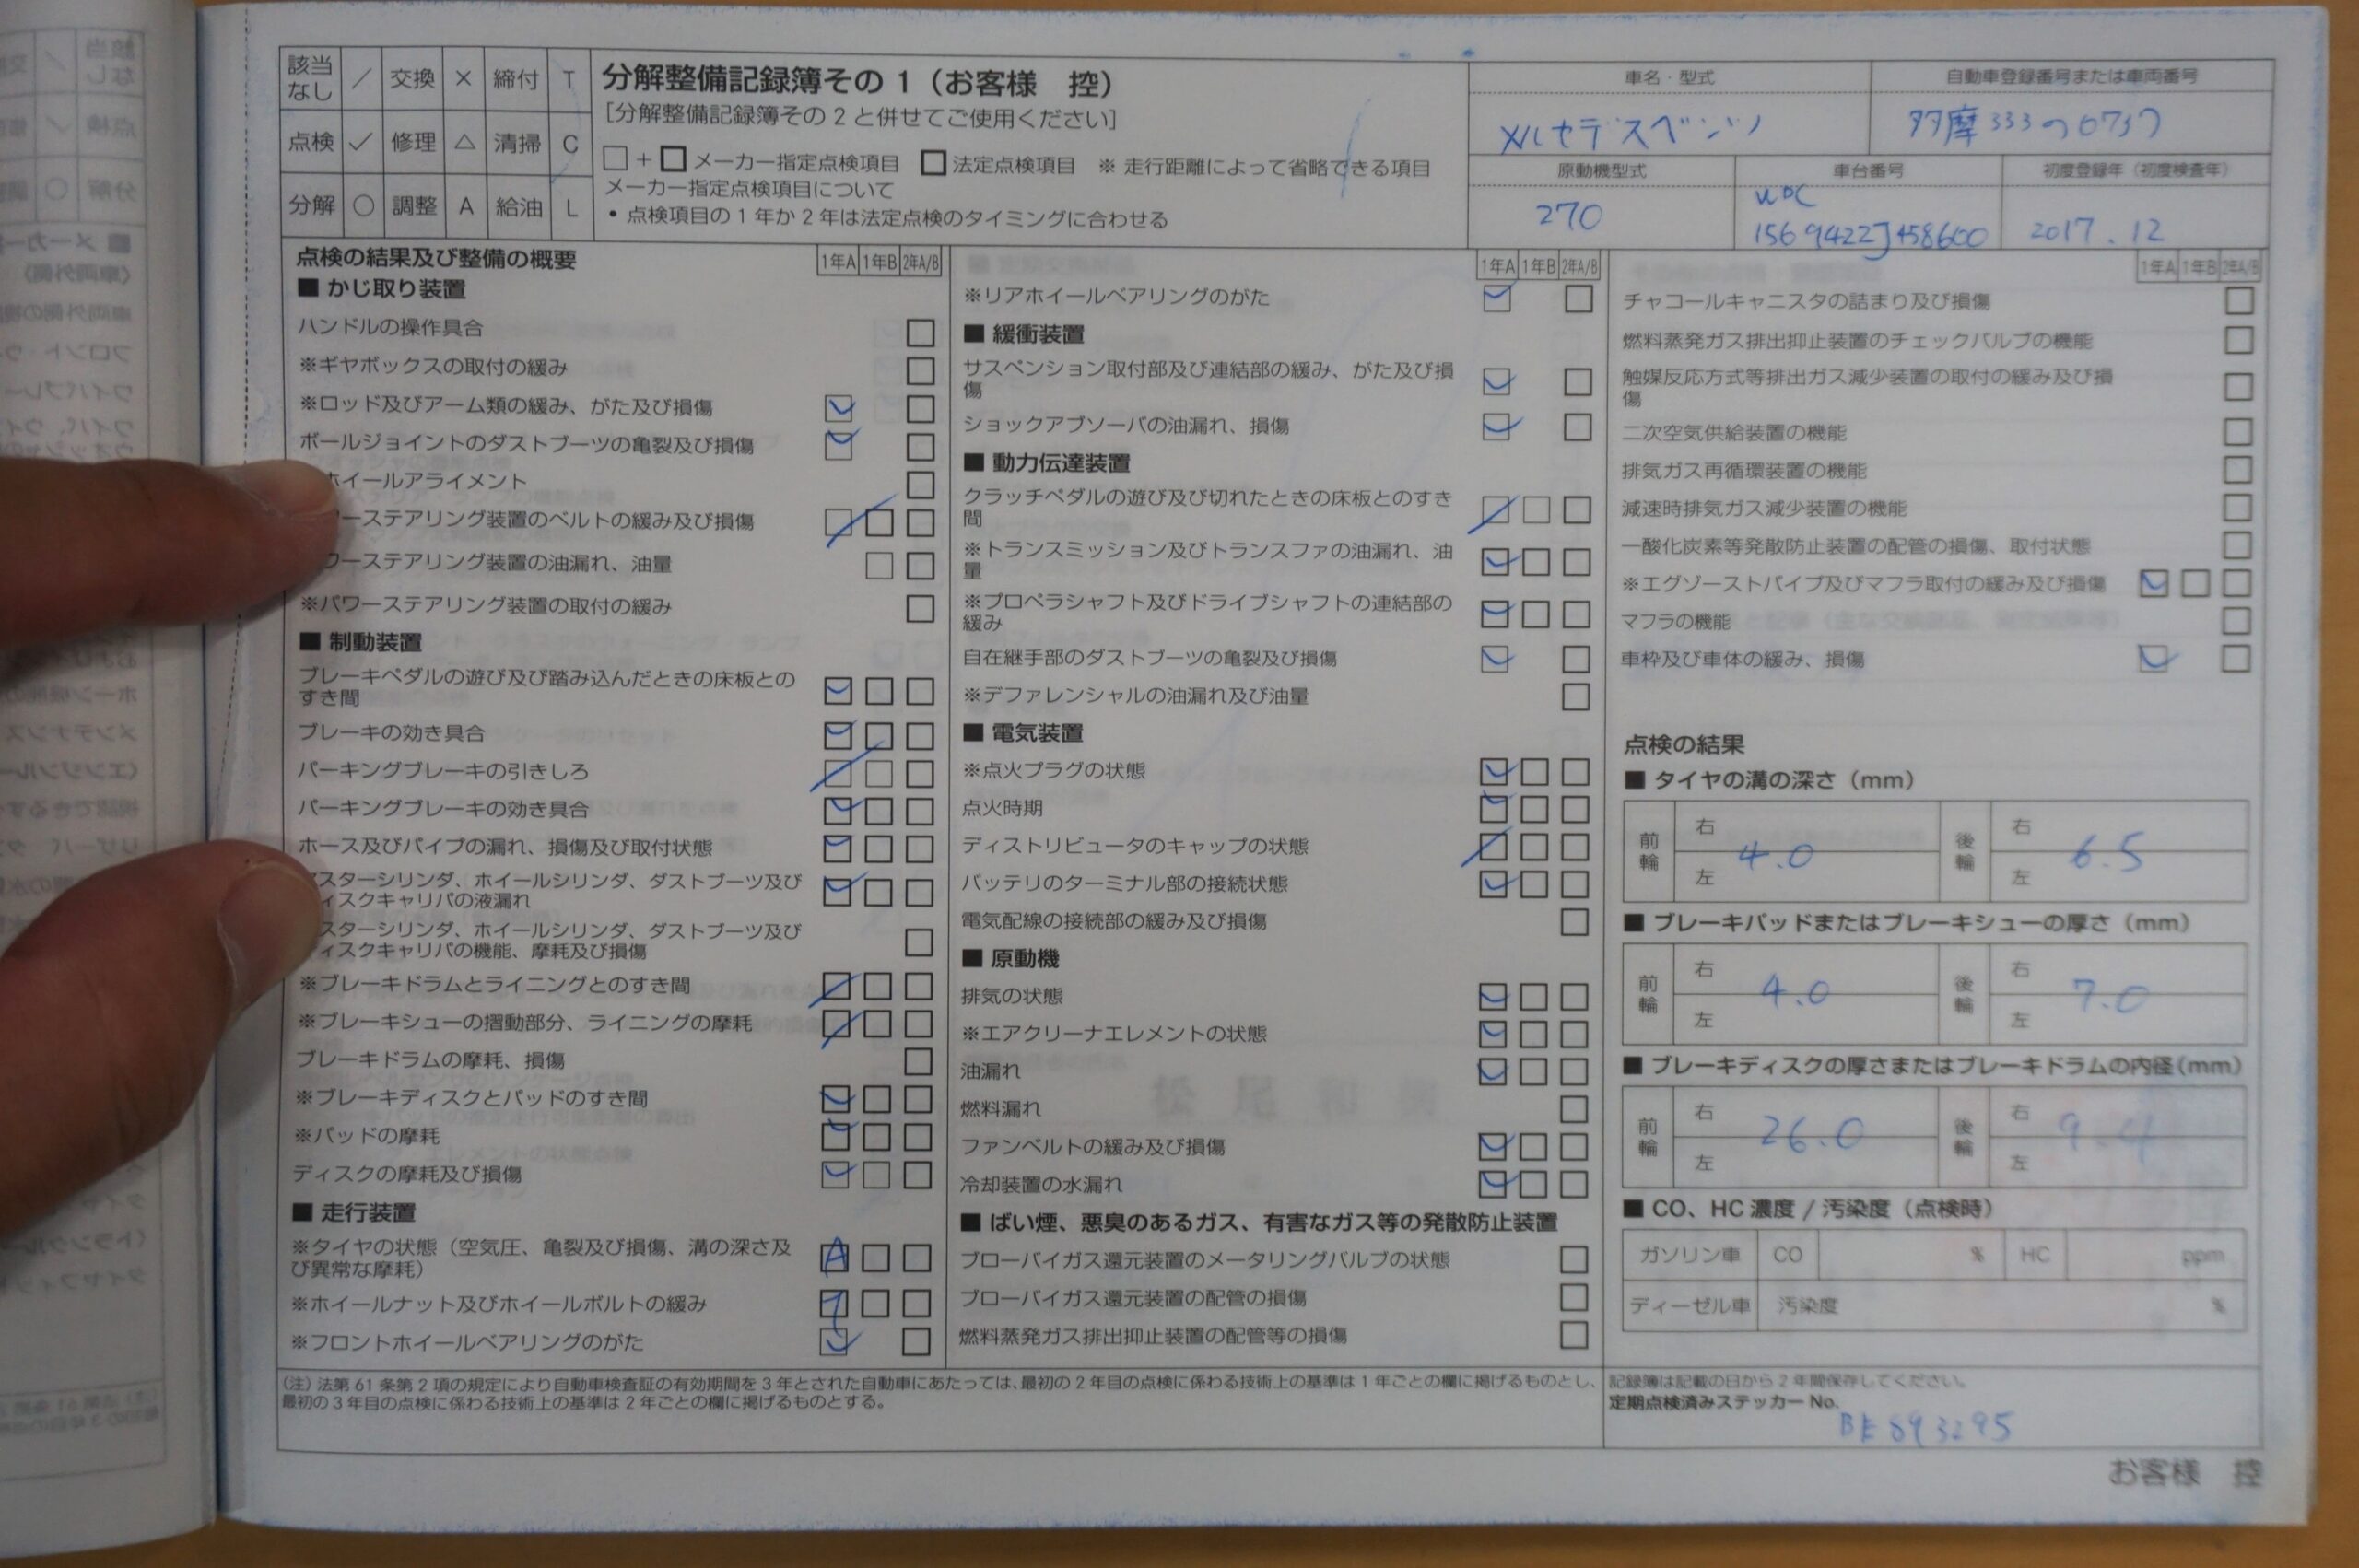 該当なし ／ 交換 × 締付 T
点検 ✓ 修理 △ 清掃 C
分解 ○ 調整 A 給油 L
分解整備記録簿その１（お客様　控）
［分解整備記録簿その２と併せてご使用ください］
□＋□メーカー指定点検項目　□法定点検項目　※ 走行距離によって省略できる項目
メーカー指定点検項目について
• 点検項目の１年か２年は法定点検のタイミングに合わせる
車名・型式
メルセデスベンツ
自動車登録番号または車両番号
多摩 333
原動機型式
270
車台番号
WDC
1569422J458600
初度登録年（初度検査年）
2017.12
点検の結果及び整備の概要
1年A 1年B 2年A/B
■ かじ取り装置
ハンドルの操作具合
※ギヤボックスの取付の緩み
※ロッド及びアーム類の緩み、がた及び損傷
ボールジョイントのダストブーツの亀裂及び損傷
ホイールアライメント
ーステアリング装置のベルトの緩み及び損傷
ワーステアリング装置の油漏れ、油量
※パワーステアリング装置の取付の緩み
■ 制動装置
ブレーキペダルの遊び及び踏み込んだときの床板との
すき間
ブレーキの効き具合
パーキングブレーキの引きしろ
パーキングブレーキの効き具合
ホース及びパイプの漏れ、損傷及び取付状態
スターシリンダ、ホイールシリンダ、ダストブーツ及び
ィスクキャリパの液漏れ
スターシリンダ、ホイールシリンダ、ダストブーツ及び
ィスクキャリパの機能、摩耗及び損傷
※ブレーキドラムとライニングとのすき間
※ブレーキシューの摺動部分、ライニングの摩耗
ブレーキドラムの摩耗、損傷
※ブレーキディスクとパッドのすき間
※パッドの摩耗
ディスクの摩耗及び損傷
■ 走行装置
※タイヤの状態（空気圧、亀裂及び損傷、溝の深さ及
び異常な摩耗）
A
※ホイールナット及びホイールボルトの緩み
T
※フロントホイールベアリングのがた
1年A 1年B 2年A/B
※リアホイールベアリングのがた
■ 緩衝装置
サスペンション取付部及び連結部の緩み、がた及び損
傷
ショックアブソーバの油漏れ、損傷
■ 動力伝達装置
クラッチペダルの遊び及び切れたときの床板とのすき
間
※トランスミッション及びトランスファの油漏れ、油
量
※プロペラシャフト及びドライブシャフトの連結部の
緩み
自在継手部のダストブーツの亀裂及び損傷
※デファレンシャルの油漏れ及び油量
■ 電気装置
※点火プラグの状態
点火時期
ディストリビュータのキャップの状態
バッテリのターミナル部の接続状態
電気配線の接続部の緩み及び損傷
■ 原動機
排気の状態
※エアクリーナエレメントの状態
油漏れ
燃料漏れ
ファンベルトの緩み及び損傷
冷却装置の水漏れ
■ ばい煙、悪臭のあるガス、有害なガス等の発散防止装置
ブローバイガス還元装置のメータリングバルブの状態
ブローバイガス還元装置の配管の損傷
燃料蒸発ガス排出抑止装置の配管等の損傷
1年A 1年B 2年A/B
チャコールキャニスタの詰まり及び損傷
燃料蒸発ガス排出抑止装置のチェックバルブの機能
触媒反応方式等排出ガス減少装置の取付の緩み及び損
傷
二次空気供給装置の機能
排気ガス再循環装置の機能
減速時排気ガス減少装置の機能
一酸化炭素等発散防止装置の配管の損傷、取付状態
※エグゾーストパイプ及びマフラ取付の緩み及び損傷
マフラの機能
車枠及び車体の緩み、損傷
点検の結果
■ タイヤの溝の深さ（mm）
前輪 右 左 4.0 後輪 右 左 6.5
■ ブレーキパッドまたはブレーキシューの厚さ（mm）
前輪 右 左 4.0 後輪 右 左 7.0
■ ブレーキディスクの厚さまたはブレーキドラムの内径(mm)
前輪 右 左 26.0 後輪 右 左 9.4
■ CO、HC 濃度 / 汚染度（点検時）
ガソリン車 CO % HC ppm
ディーゼル車 汚染度 %
（注）法第 61 条第 2 項の規定により自動車検査証の有効期間を 3 年とされた自動車にあたっては、最初の 2 年目の点検に係わる技術上の基準は 1 年ごとの欄に掲げるものとし、
最初の 3 年目の点検に係わる技術上の基準は 2 年ごとの欄に掲げるものとする。
記録簿は記載の日から 2 年間保存してください。
定期点検済みステッカー No.
BE 893295
お客様　控